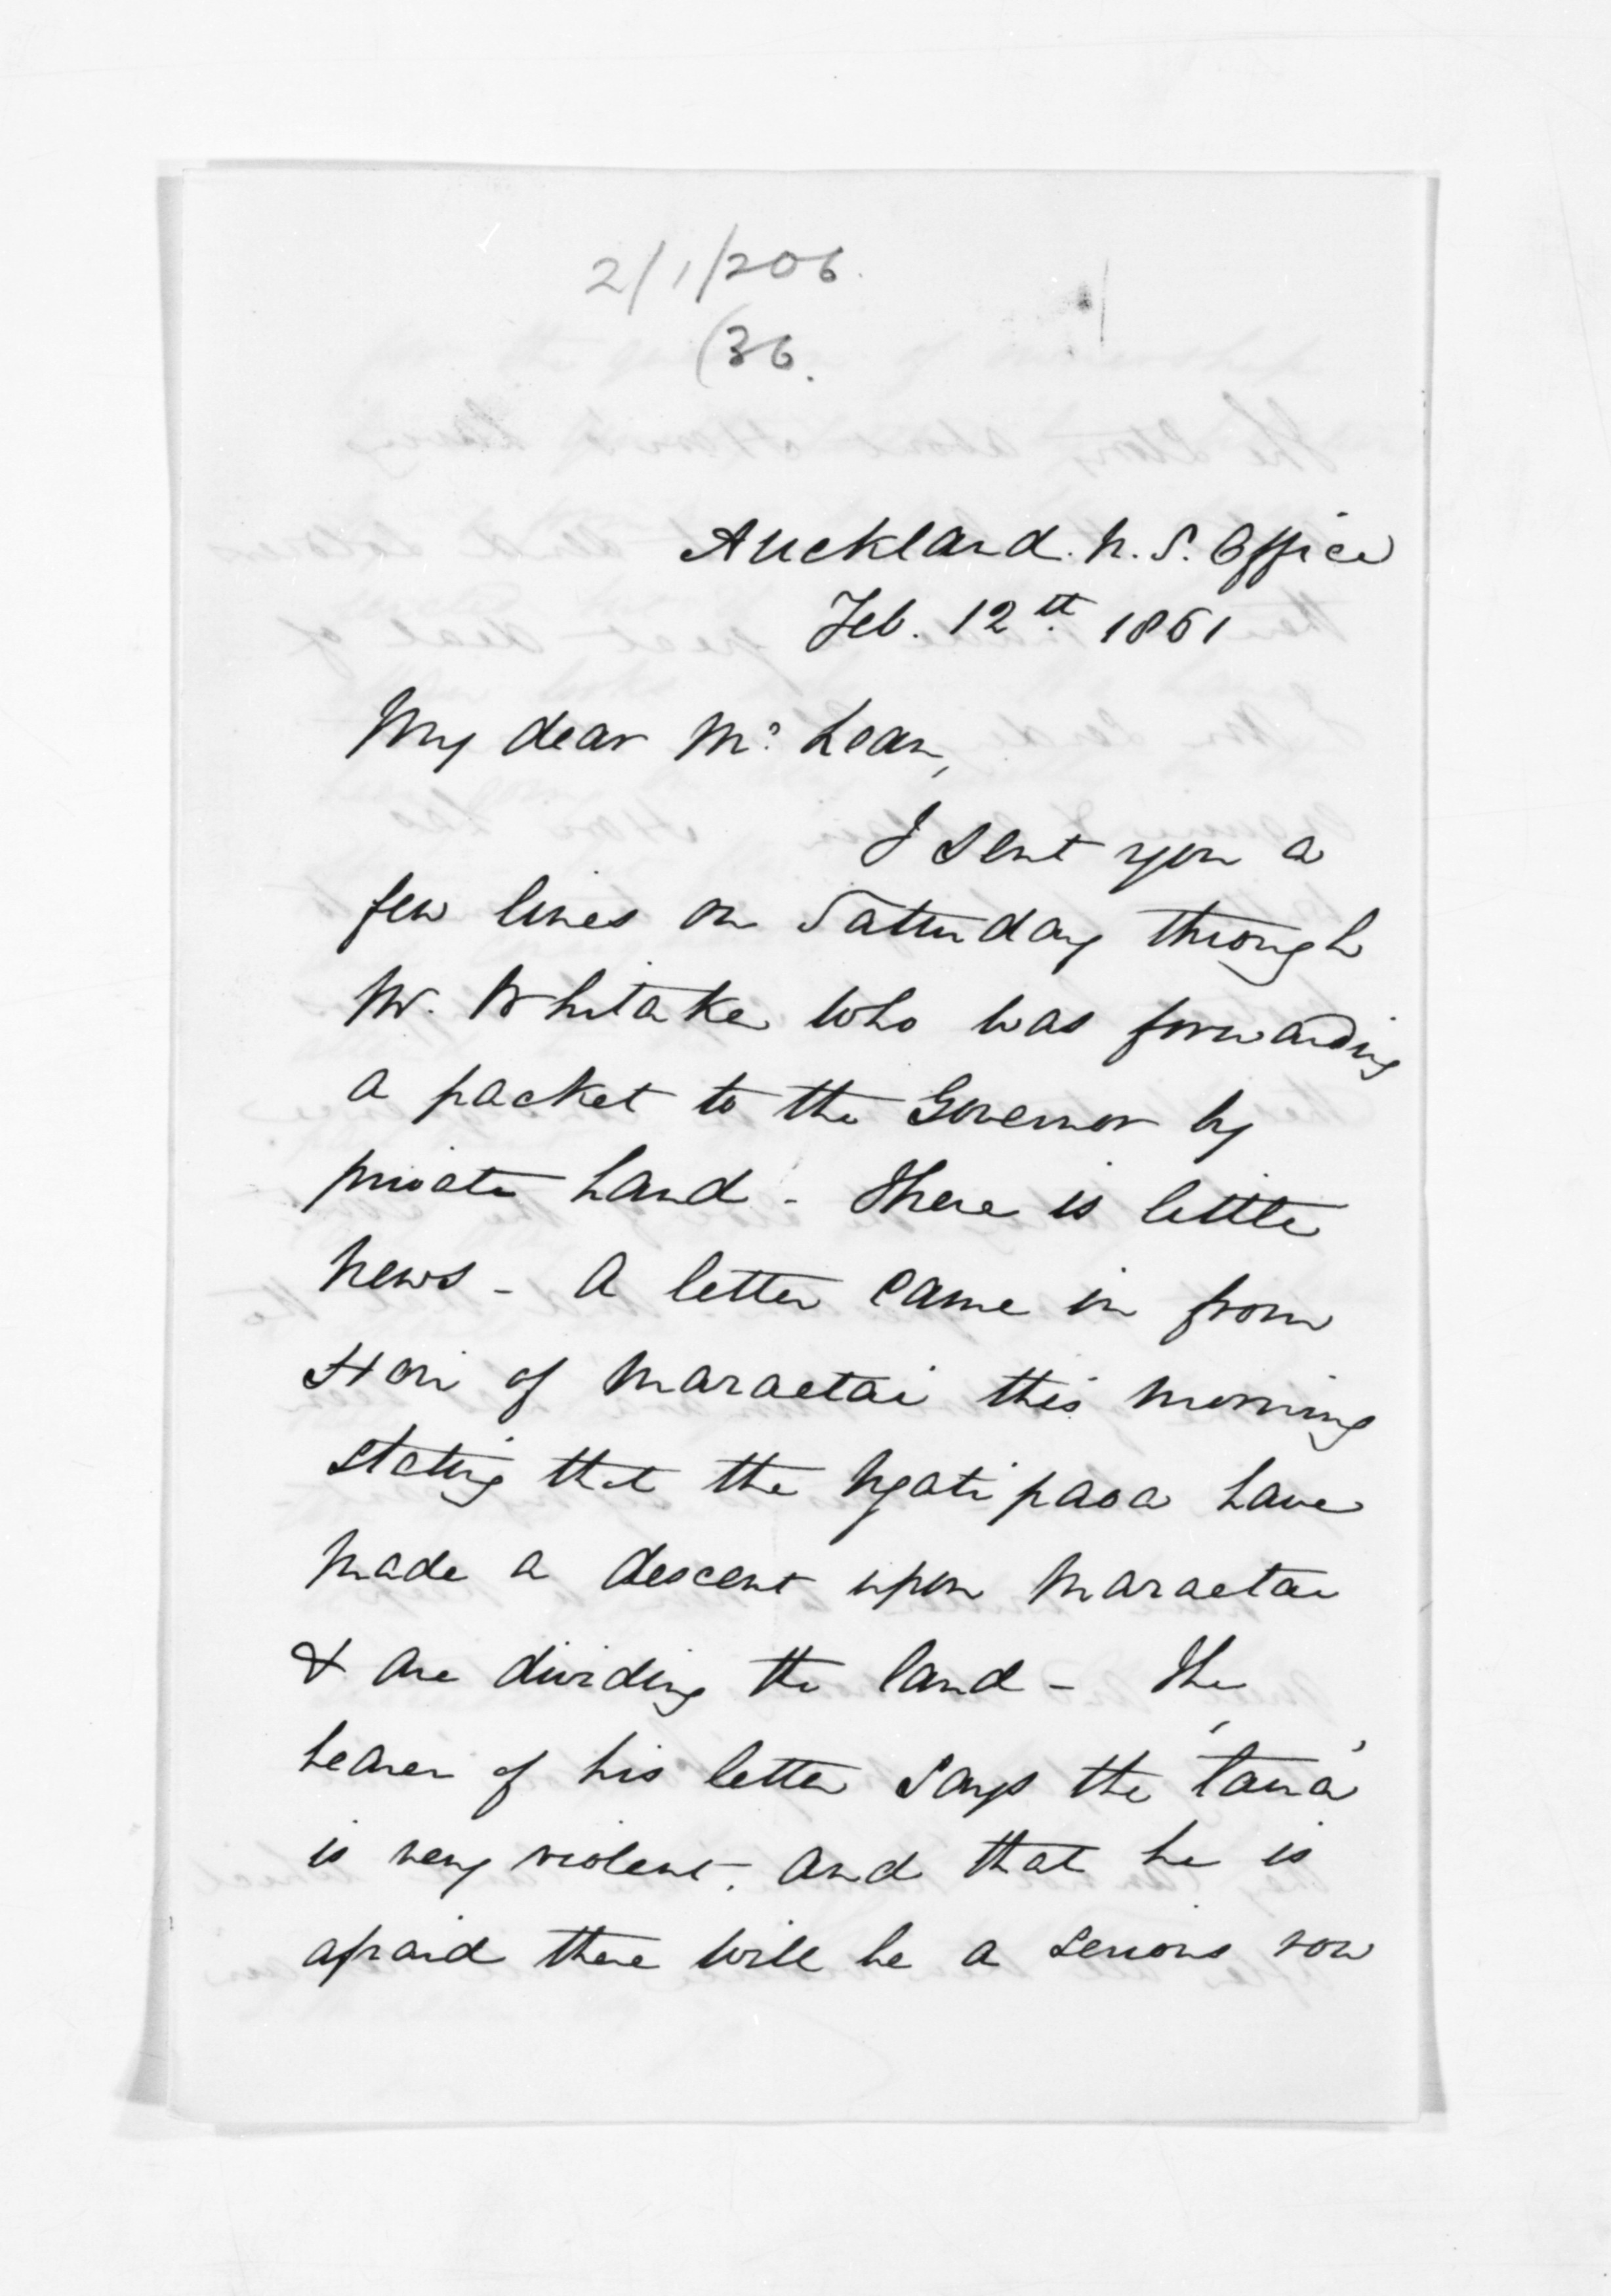 2/1/206.
(36.
Auckland. N. S. Office
Feb. 12th. 1861
My dear Mc. Lean,
I sent you a
few lines on Satturday through
Mr. Whitaker who was forwarding
a packet to the Governor by
private hand - There is little
news - A letter came in from
Hori of Maraetai this morning
stating that the Ngatipaoa have
made a descent upon Maraetai
& are dividing the land - The
bearer of his letter says the 'taua'
is very violent. and that he is
afraid there will be a serious row